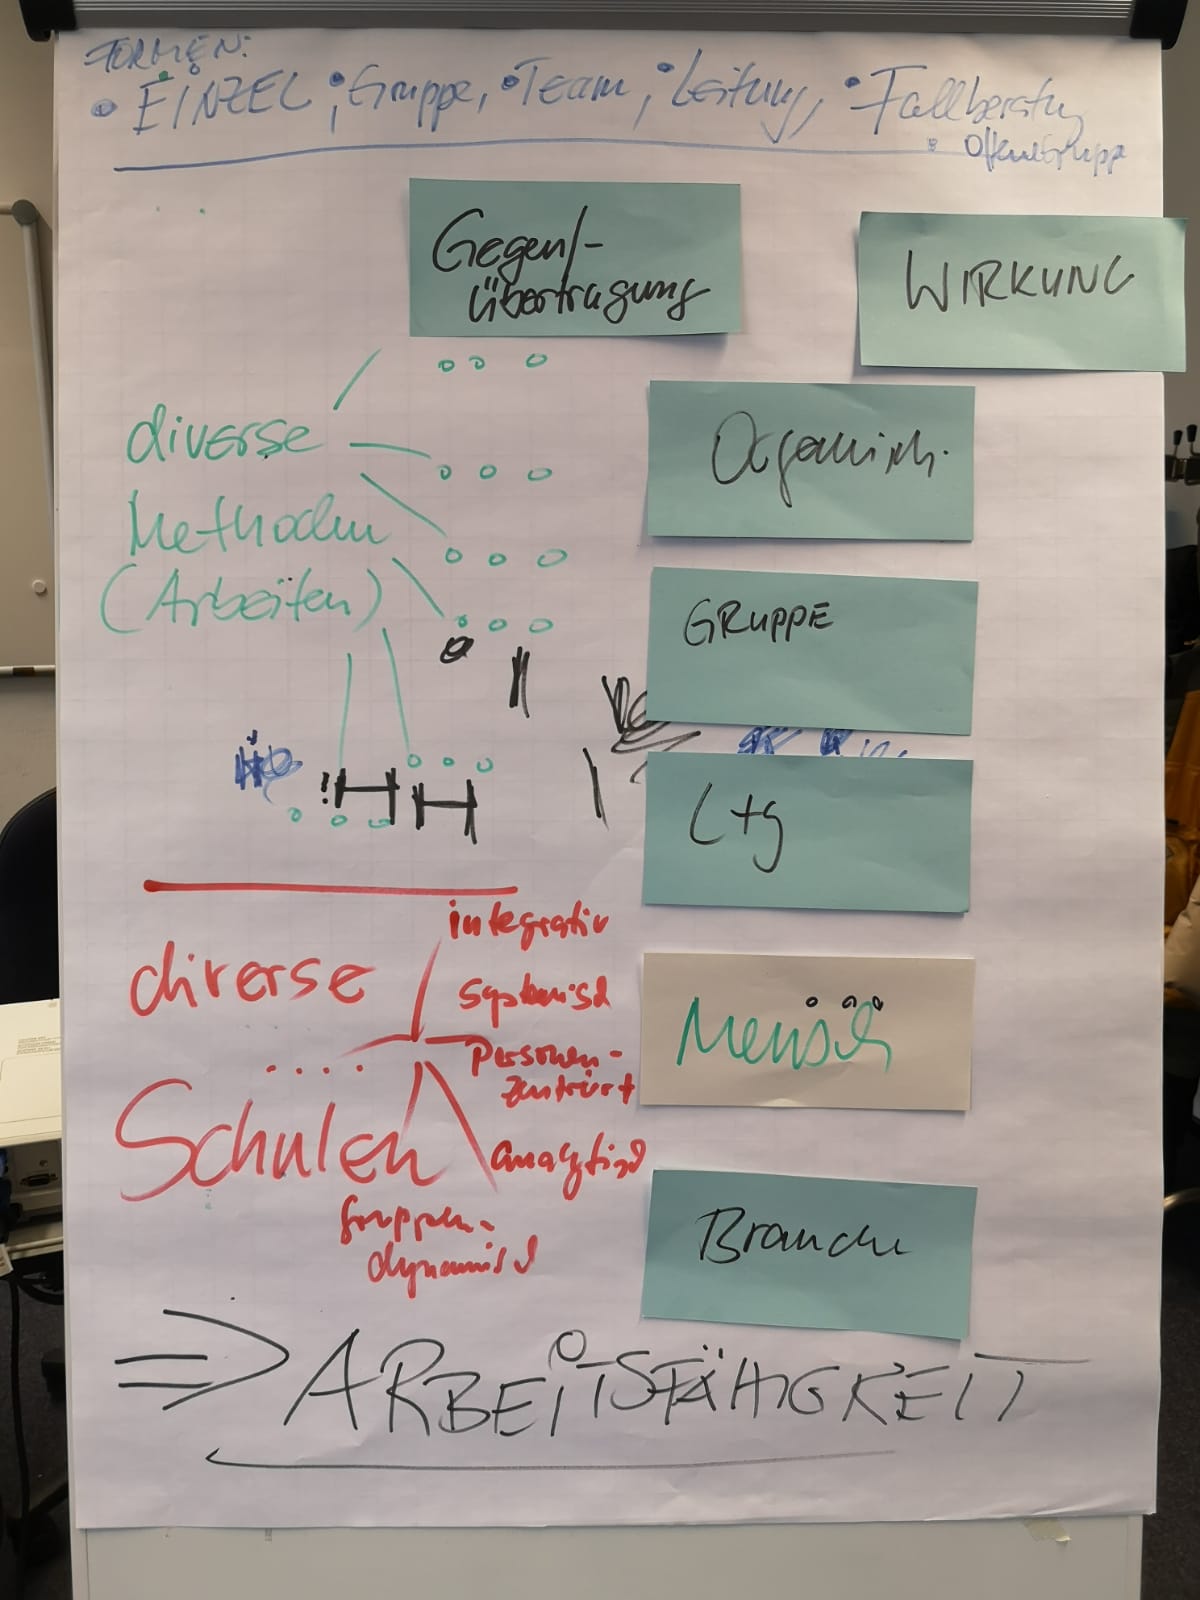 FORMEN:
• EINZEL, • Gruppe, • Team, • Leitung, • Fallberatg
Offene Gruppe
Gegen/-
übertragung
WIRKUNG
diverse
Methoden
(Arbeiten)
Organisch.
GRUPPE
Ltg
Mensch
Branche
diverse
....
Schulen
integrativ
systemisch
Personen-
zentriert
analytisch
gruppen-
dynamisch
⇒ ARBEITSFÄHIGKEIT